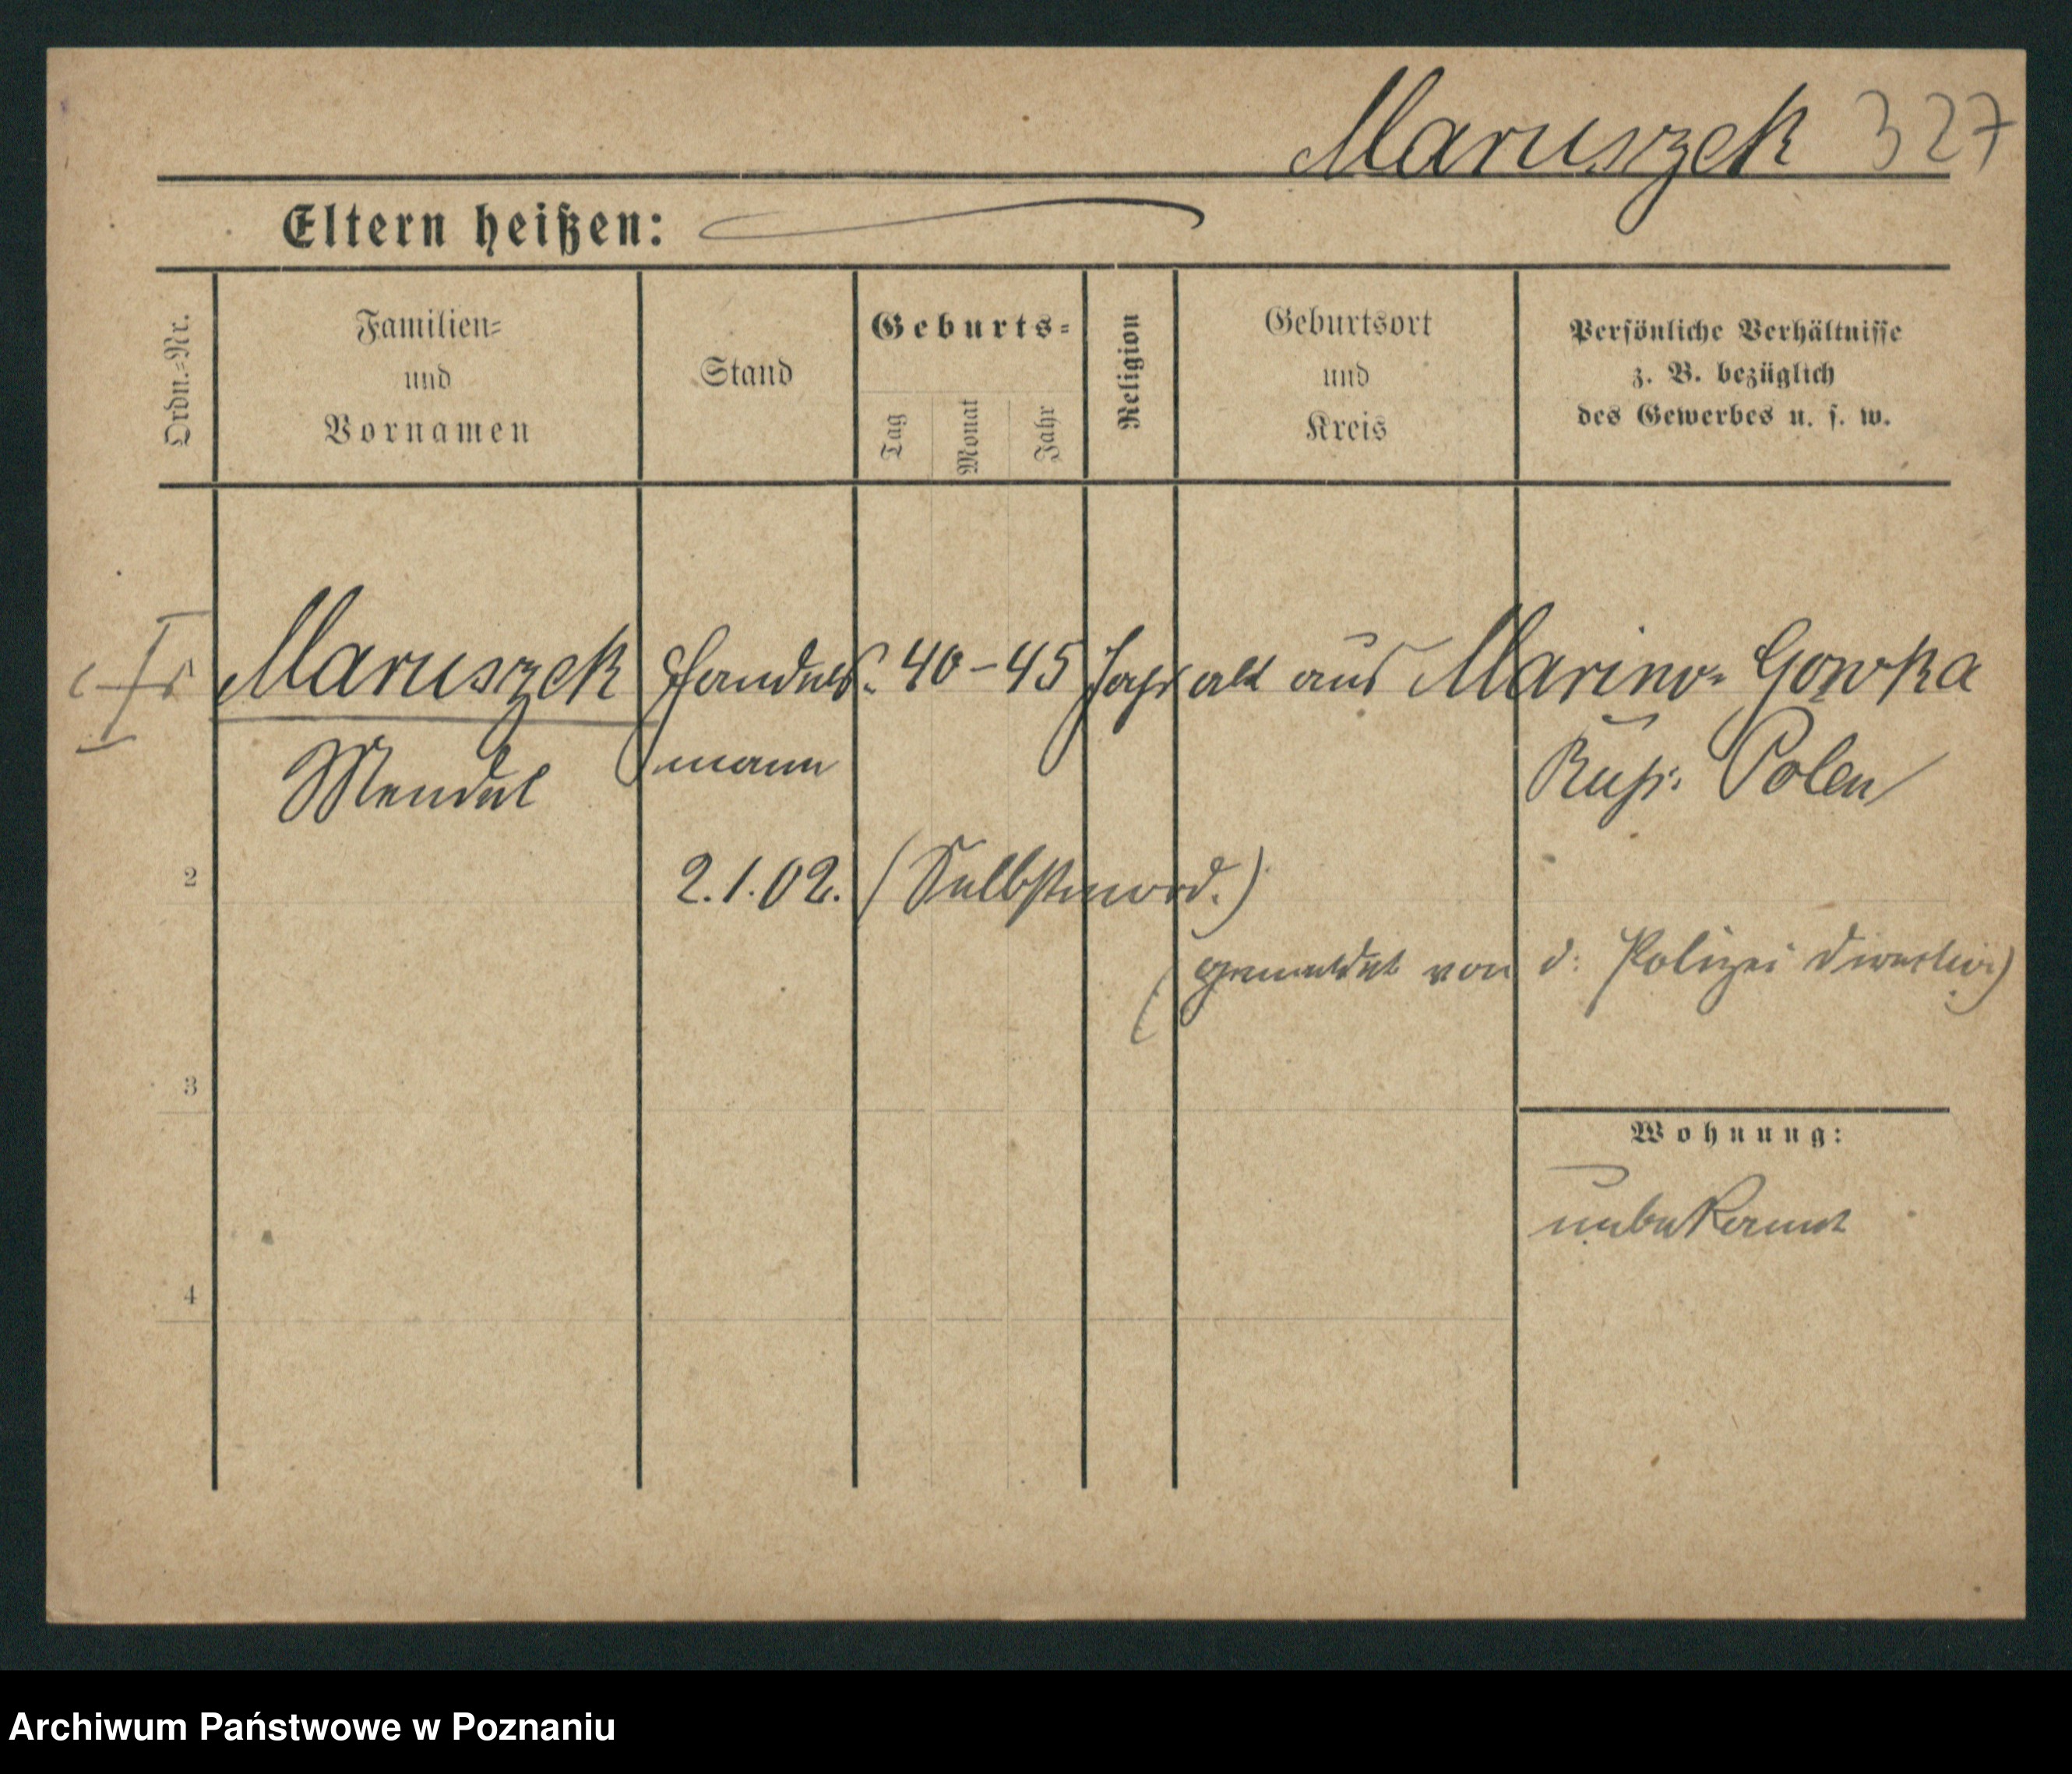 Maruszek 327
Eltern heißen:
Ordn.=Nr.
Familien=
und
Vornamen
Stand
Geburts=
Tag
Monat
Jahr
Religion
Geburtsort
und
Kreis
Persönliche Verhältnisse
z. B. bezüglich
des Gewerbes u. s. w.
Maruszek Handels= 40-45 Jahr alt aus Marino= Gowka
Mendel mann Russ: Polen
2
2.1.02. (Selbstmord.)
(gemeldet von d: Polizei Direction)
3
Wohnung:
unbekannt
4
Archiwum Państwowe w Poznaniu